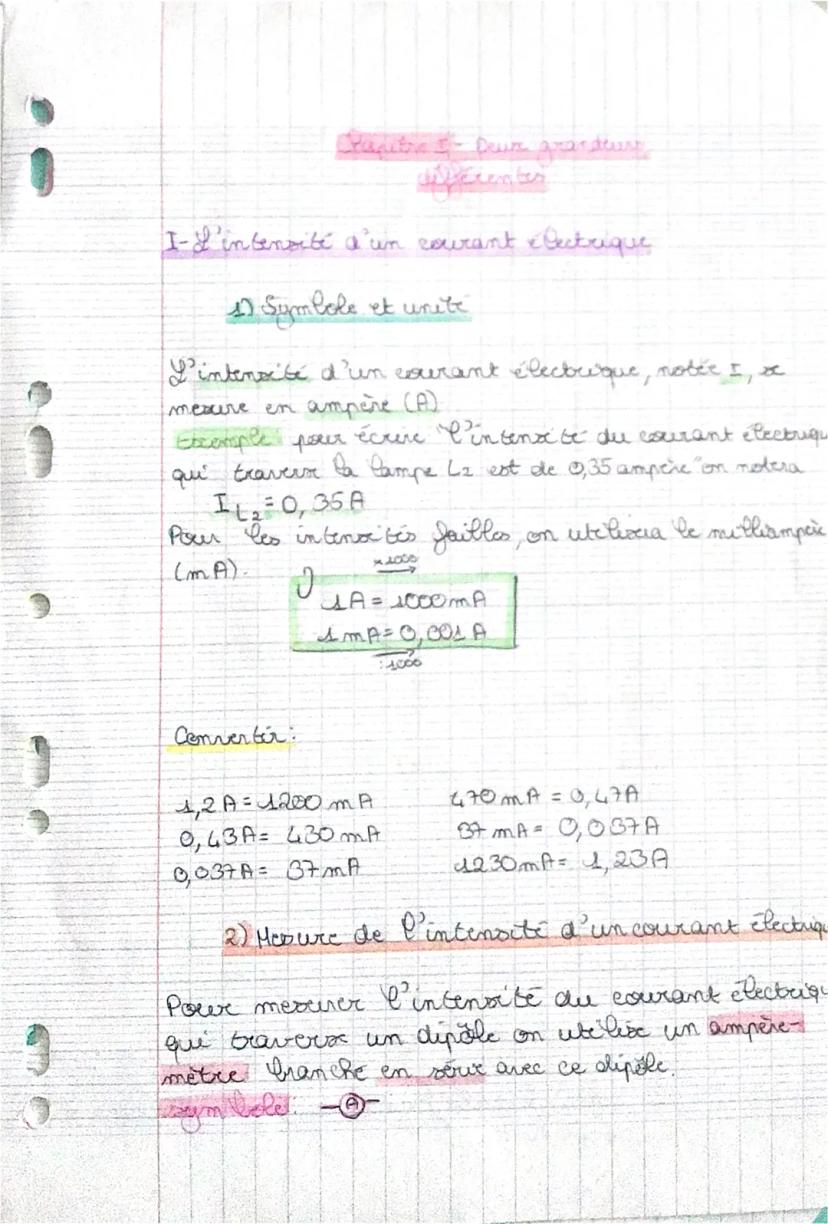 Chapitre I - Deux grandeurs
différentes
I-L'intensité d'un courant électrique
1) Symbole et unité
L'intensité d'un courant électrique, notée I, se
mesure en ampère (A)
Exemple: pour écrire "l'intensité du courant électriqu
qui traverse la lampe L2 est de 0,35 ampère" on notera
I L2 = 0,35A
Pour les intensités faibles, on utilisera le milliampère
(mA).
x 1000
1A = 1000mA
1mA = 0,001A
:1000
Convertir:
1,2A = 1200 mA 470 mA = 0,47A
0,43A = 430 mA 37 mA = 0,037A
0,037A = 37mA 1230mA = 1,23A
2) Mesure de l'intensité d'un courant électriqu
Pour mesurer l'intensité du courant électriqu
qui traverse un dipôle on utilise un ampère-
mètre branché en série avec ce dipôle.
symbole: A